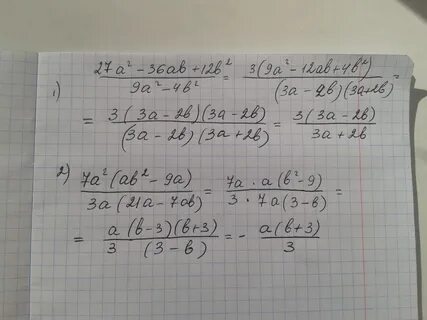 1) (27a² - 36ab + 12b²)/(9a² - 4b²) = 3(9a² - 12ab + 4b²)/((3a - 2b)(3a + 2b)) =
= 3(3a - 2b)(3a - 2b)/((3a - 2b)(3a + 2b)) = 3(3a - 2b)/(3a + 2b)
2) 7a²(ab² - 9a)/(3a(21a - 7ab)) = 7a · a(b² - 9)/(3 · 7a(3 - b)) =
= a(b - 3)(b + 3)/(3(3 - b)) = - a(b + 3)/3